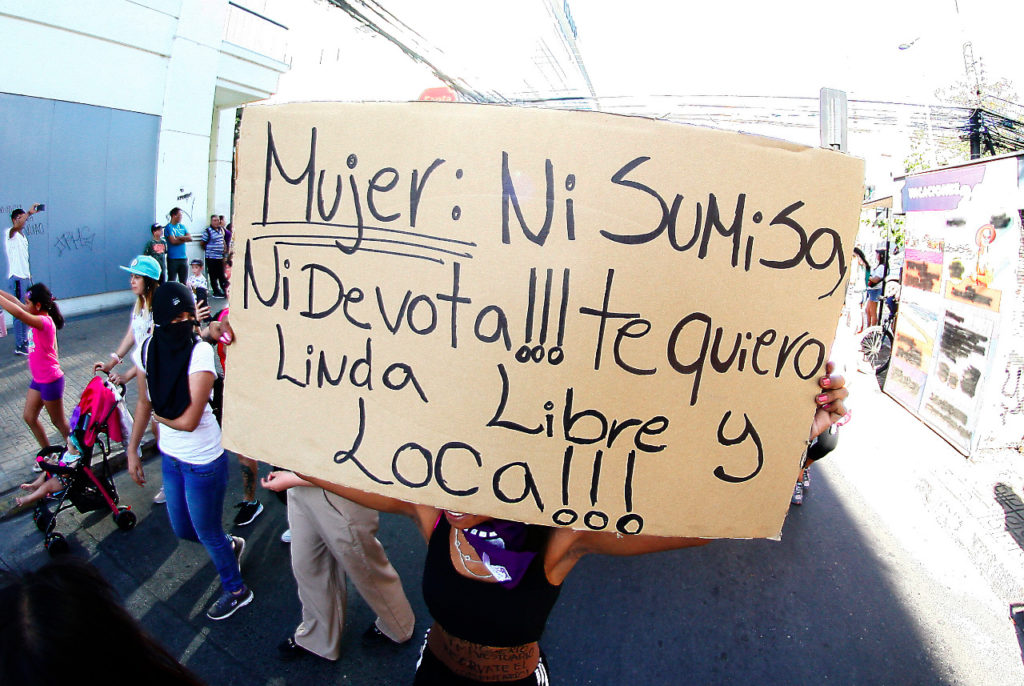 Mujer: Ni SUMiSa,
Ni Devota!!! te quiero
Linda Libre y
Loca!!!
VACACIONES